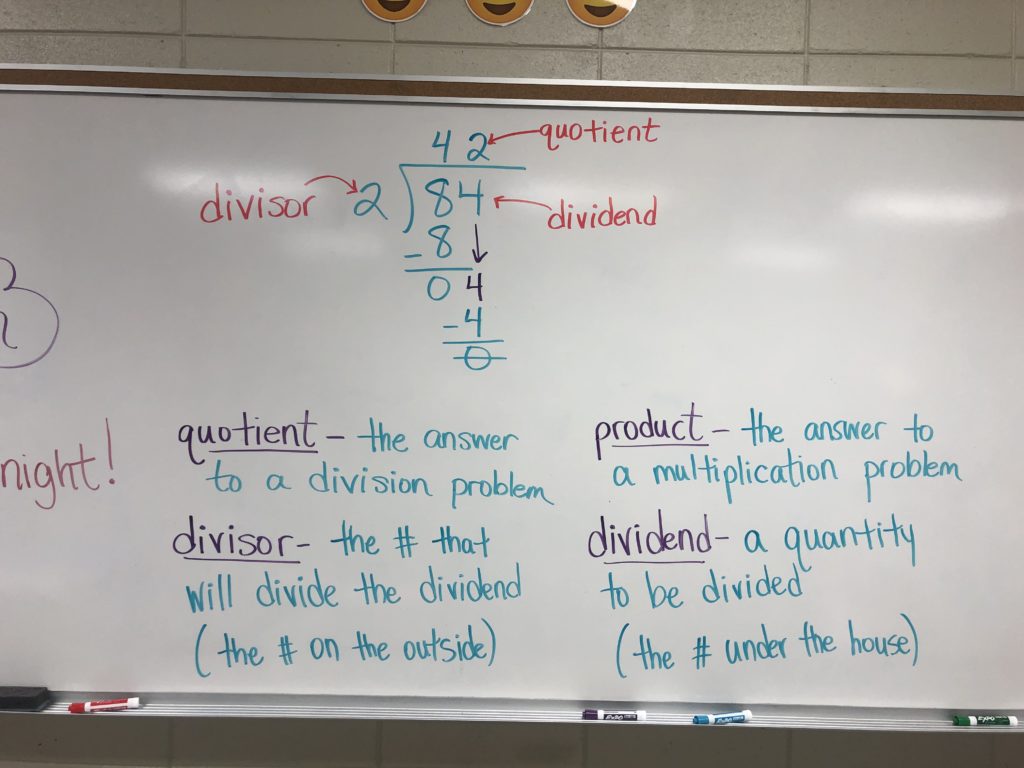 4 2 quotient
divisor 2 ) 84 dividend
- 8
0 4
- 4
0
night!
quotient - the answer
to a division problem
product - the answer to
a multiplication problem
divisor - the # that
will divide the dividend
(the # on the outside)
dividend - a quantity
to be divided
(the # under the house)
EXPO
EXPO